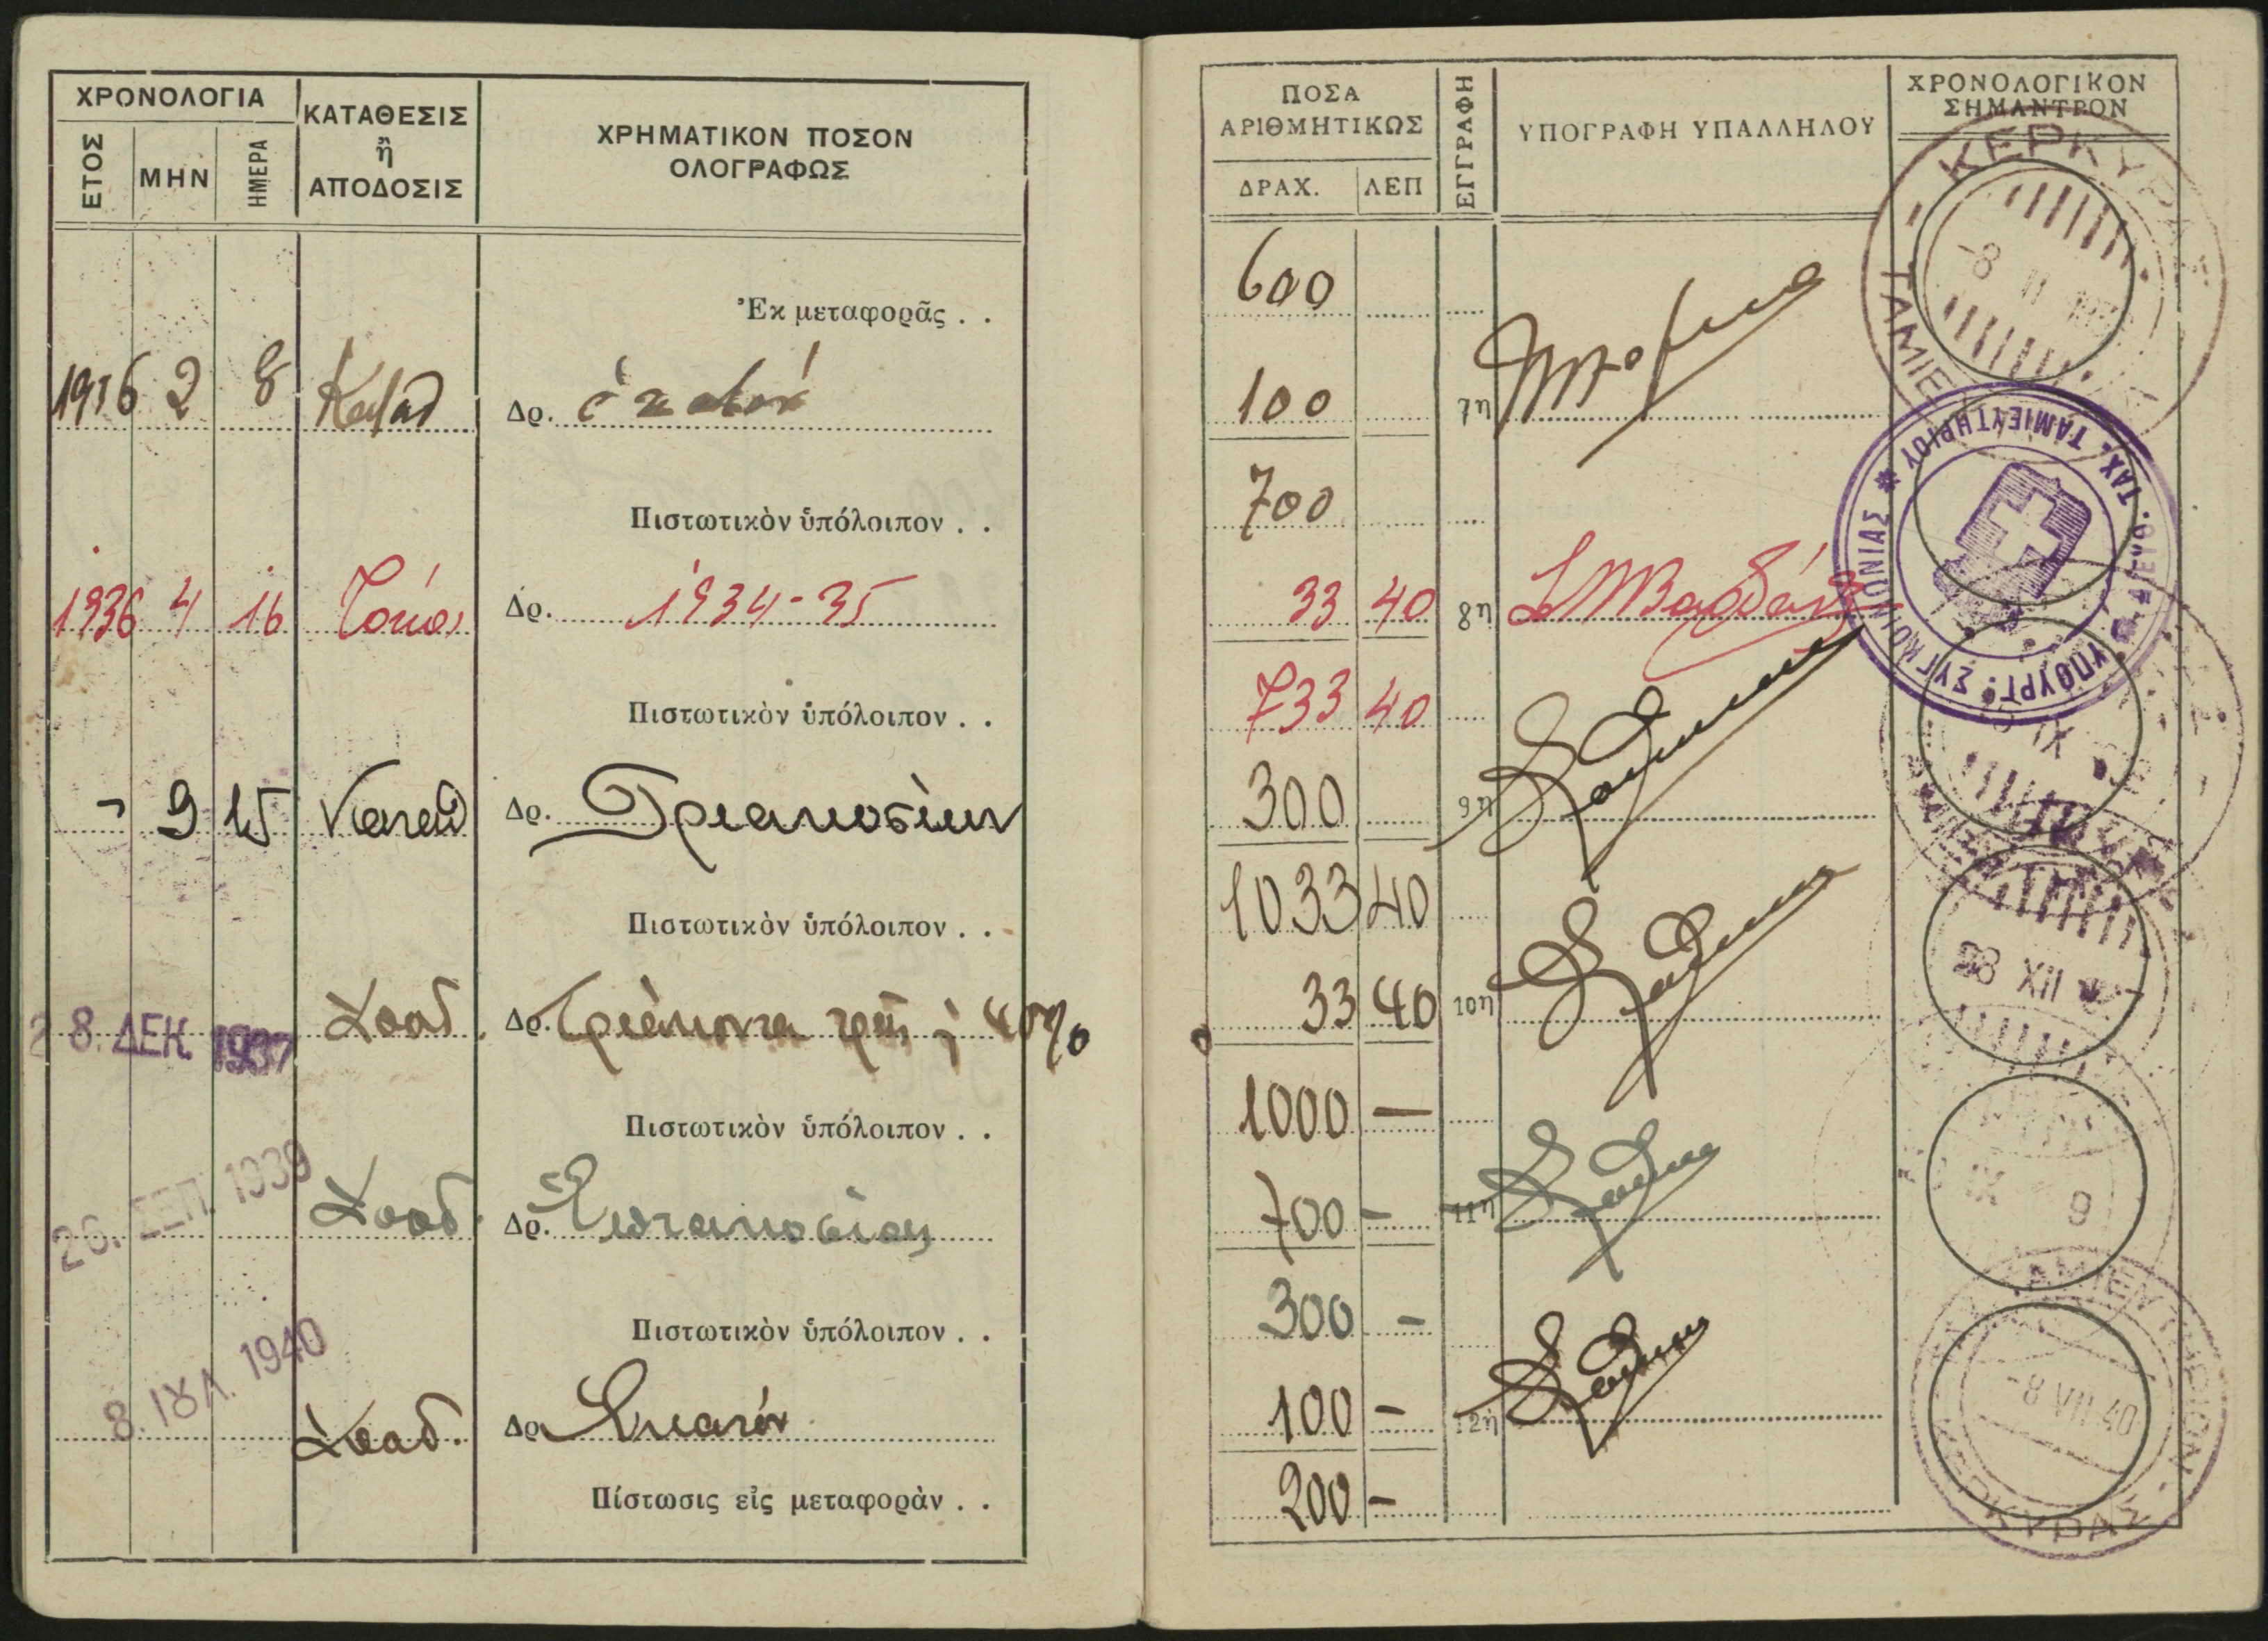 ΧΡΟΝΟΛΟΓΙΑ
ΕΤΟΣ ΜΗΝ ΗΜΕΡΑ
ΚΑΤΑΘΕΣΙΣ
ἢ
ΑΠΟΔΟΣΙΣ
ΧΡΗΜΑΤΙΚΟΝ ΠΟΣΟΝ
ΟΛΟΓΡΑΦΩΣ
Ἐκ μεταφορᾶς . .
1936 2 8 Καταθ Δρ. ἑκατόν
Πιστωτικὸν ὑπόλοιπον . .
1936 4 16 Τόκοι Δρ. 1934-35
Πιστωτικὸν ὑπόλοιπον . .
9 15 Καταθ Δρ. Τριακοσίων
Πιστωτικὸν ὑπόλοιπον . .
28. ΔΕΚ. 1937 Δρ. Τριάκοντα τρεῖς 40%
Πιστωτικὸν ὑπόλοιπον . .
26. ΣΕΠ. 1939 Δρ. Ἑπτακοσίας
Πιστωτικὸν ὑπόλοιπον . .
8. ΙΟΥΛ. 1940 Δρ Ἑκατόν
Πίστωσις εἰς μεταφορὰν . .
ΠΟΣΑ
ΑΡΙΘΜΗΤΙΚΩΣ
ΔΡΑΧ. ΛΕΠ
ΕΓΓΡΑΦΗ
ΥΠΟΓΡΑΦΗ ΥΠΑΛΛΗΛΟΥ
ΧΡΟΝΟΛΟΓΙΚΟΝ
ΣΗΜΑΝΤΡΟΝ
600
100 7η
700
33 40 8η
733 40
300 9η
1033 40
33 40 10η
1000 —
700 - 11η
300 -
100 - 12η
200 -
ΚΕΡΚΥΡΑΣ
ΤΑΜΙΕ
-8 II
ΥΠΟΥΡΓ. ΣΥΓΚΟΙΝΩΝΙΑΣ * ΤΑΧ. ΤΑΜΙΕΥΤΗΡΙΟΥ
IX
28 XII
IX 9
ΤΑΜΙΕΥΤΗΡΙΟΝ
-8 VII 40
ΚΕΡΚΥΡΑΣ